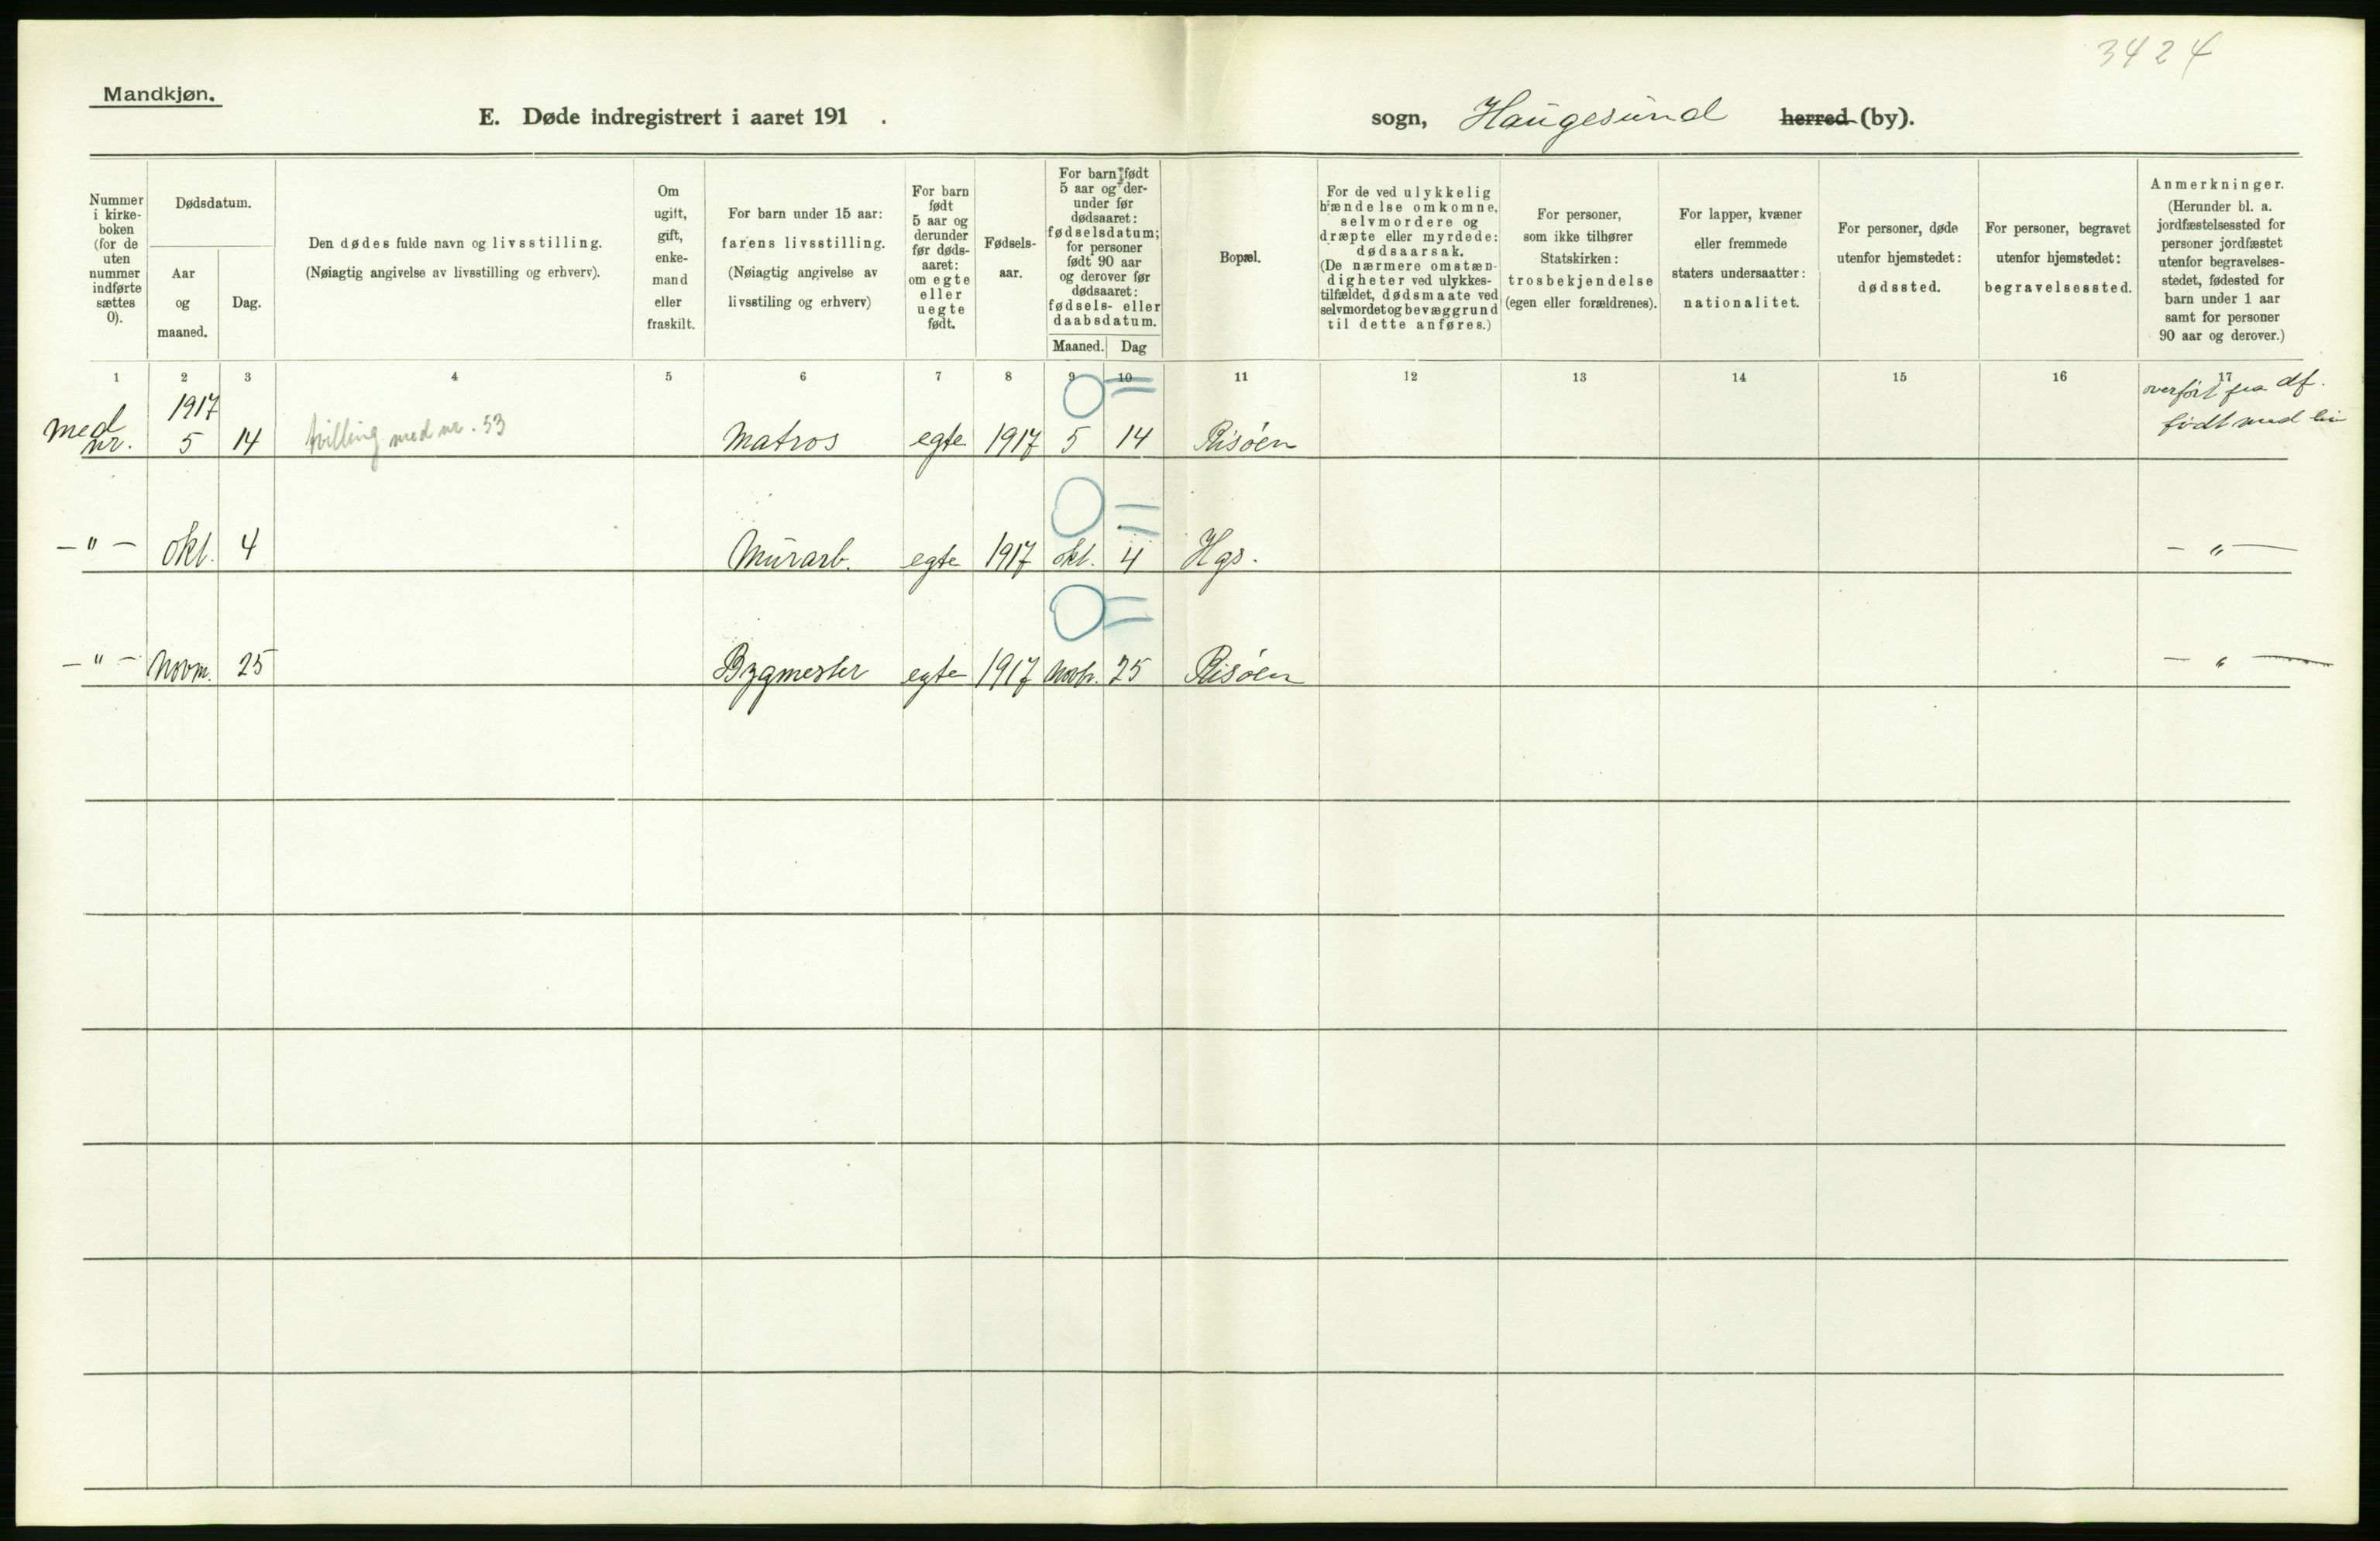 3424
Mandkjøn.
E. Døde indregistrert i aaret 191 .
sogn, Haugesund herred (by).
Nummer i kirkeboken (for de uten nummer indførte sættes 0).
Dødsdatum.
Aar og maaned.
Dag.
Den dødes fulde navn og livsstilling.
(Nøiagtig angivelse av livsstilling og erhverv).
Om ugift, gift, enkemand eller fraskilt.
For barn under 15 aar:
farens livsstilling.
(Nøiagtig angivelse av
livsstiling og erhverv)
For barn født 5 aar og derunder før dødsaaret: om egte eller uegte født.
Fødselsaar.
For barn født 5 aar og derunder før dødsaaret: fødselsdatum; for personer født 90 aar og derover før dødsaaret: fødsels- eller daabsdatum.
Maaned.
Dag
Bopæl.
For de ved ulykkelig hændelse omkomne, selvmordere og dræpte eller myrdede: dødsaarsak.
(De nærmere omstændigheter ved ulykkestilfældet, dødsmaate ved selvmordet og bevæggrund til dette anføres.)
For personer, som ikke tilhører Statskirken: trosbekjendelse (egen eller forældrenes).
For lapper, kvæner eller fremmede staters undersaatter: nationalitet.
For personer, døde utenfor hjemstedet: dødssted.
For personer, begravet utenfor hjemstedet: begravelsessted.
Anmerkninger.
(Herunder bl. a. jordfæstelsessted for personer jordfæstet utenfor begravelsesstedet, fødested for barn under 1 aar samt for personer 90 aar og derover.)
1 2 3 4 5 6 7 8 9 10 11 12 13 14 15 16 17
1917
med nr. 5 14 tvilling med nr. 53 Matros egte 1917 5 14 Risöen overført fra df. født med liv
— " — Okt. 4 Murarb. egte 1917 okt. 4 Hgs. — " —
— " — Novm. 25 Bygmester egte 1917 Novbr. 25 Risöen — " —